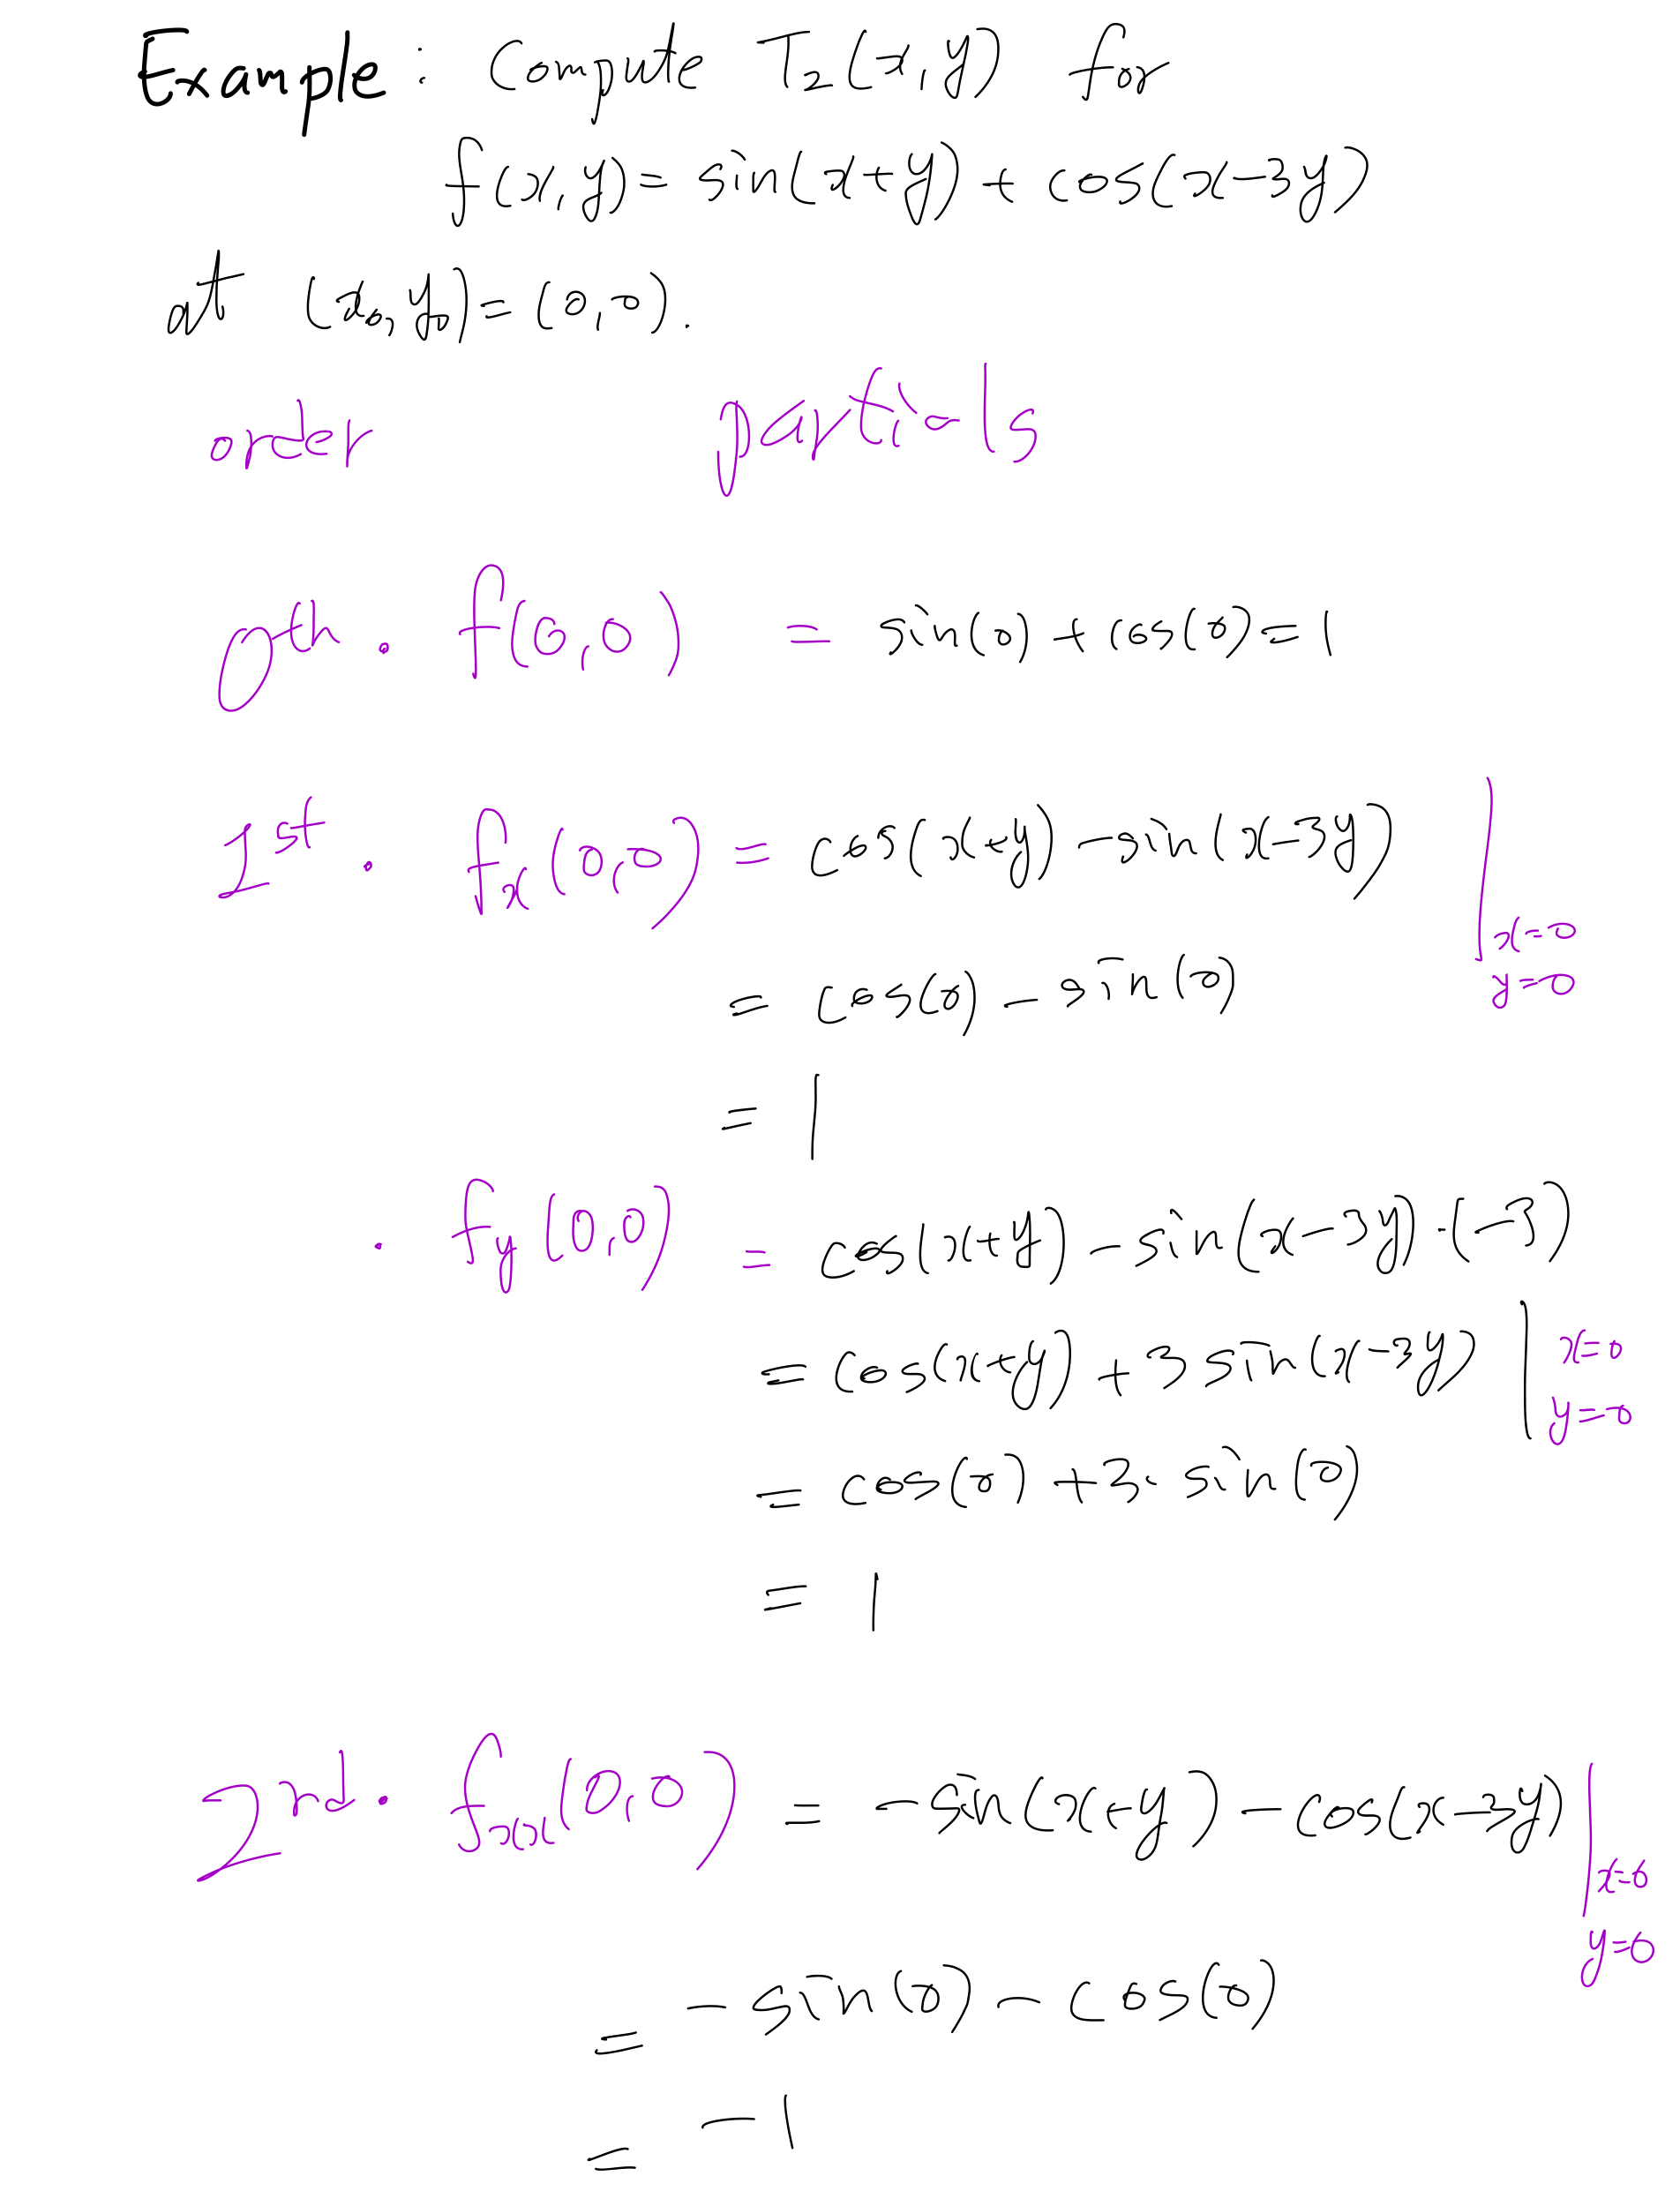 Example: Compute T₂(x,y) for
f(x,y)= sin(x+y) + cos(x-3y)
at (x₀,y₀)=(0,0).
order partials
0th • f(0,0) = sin(0) + cos(0) = 1
1st • fₓ(0,0) = cos(x+y) - sin(x-3y) | x=0 y=0
= cos(0) - sin(0)
= 1
• f_y(0,0) = cos(x+y) - sin(x-3y)·(-3)
= cos(x+y) + 3 sin(x-3y) | x=0 y=0
= cos(0) + 3· sin(0)
= 1
2nd • fₓₓ(0,0) = -sin(x+y) - cos(x-3y) | x=0 y=0
= -sin(0) - cos(0)
= -1